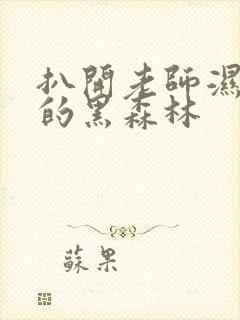 扒開老師濕
的黑森林
蘇果